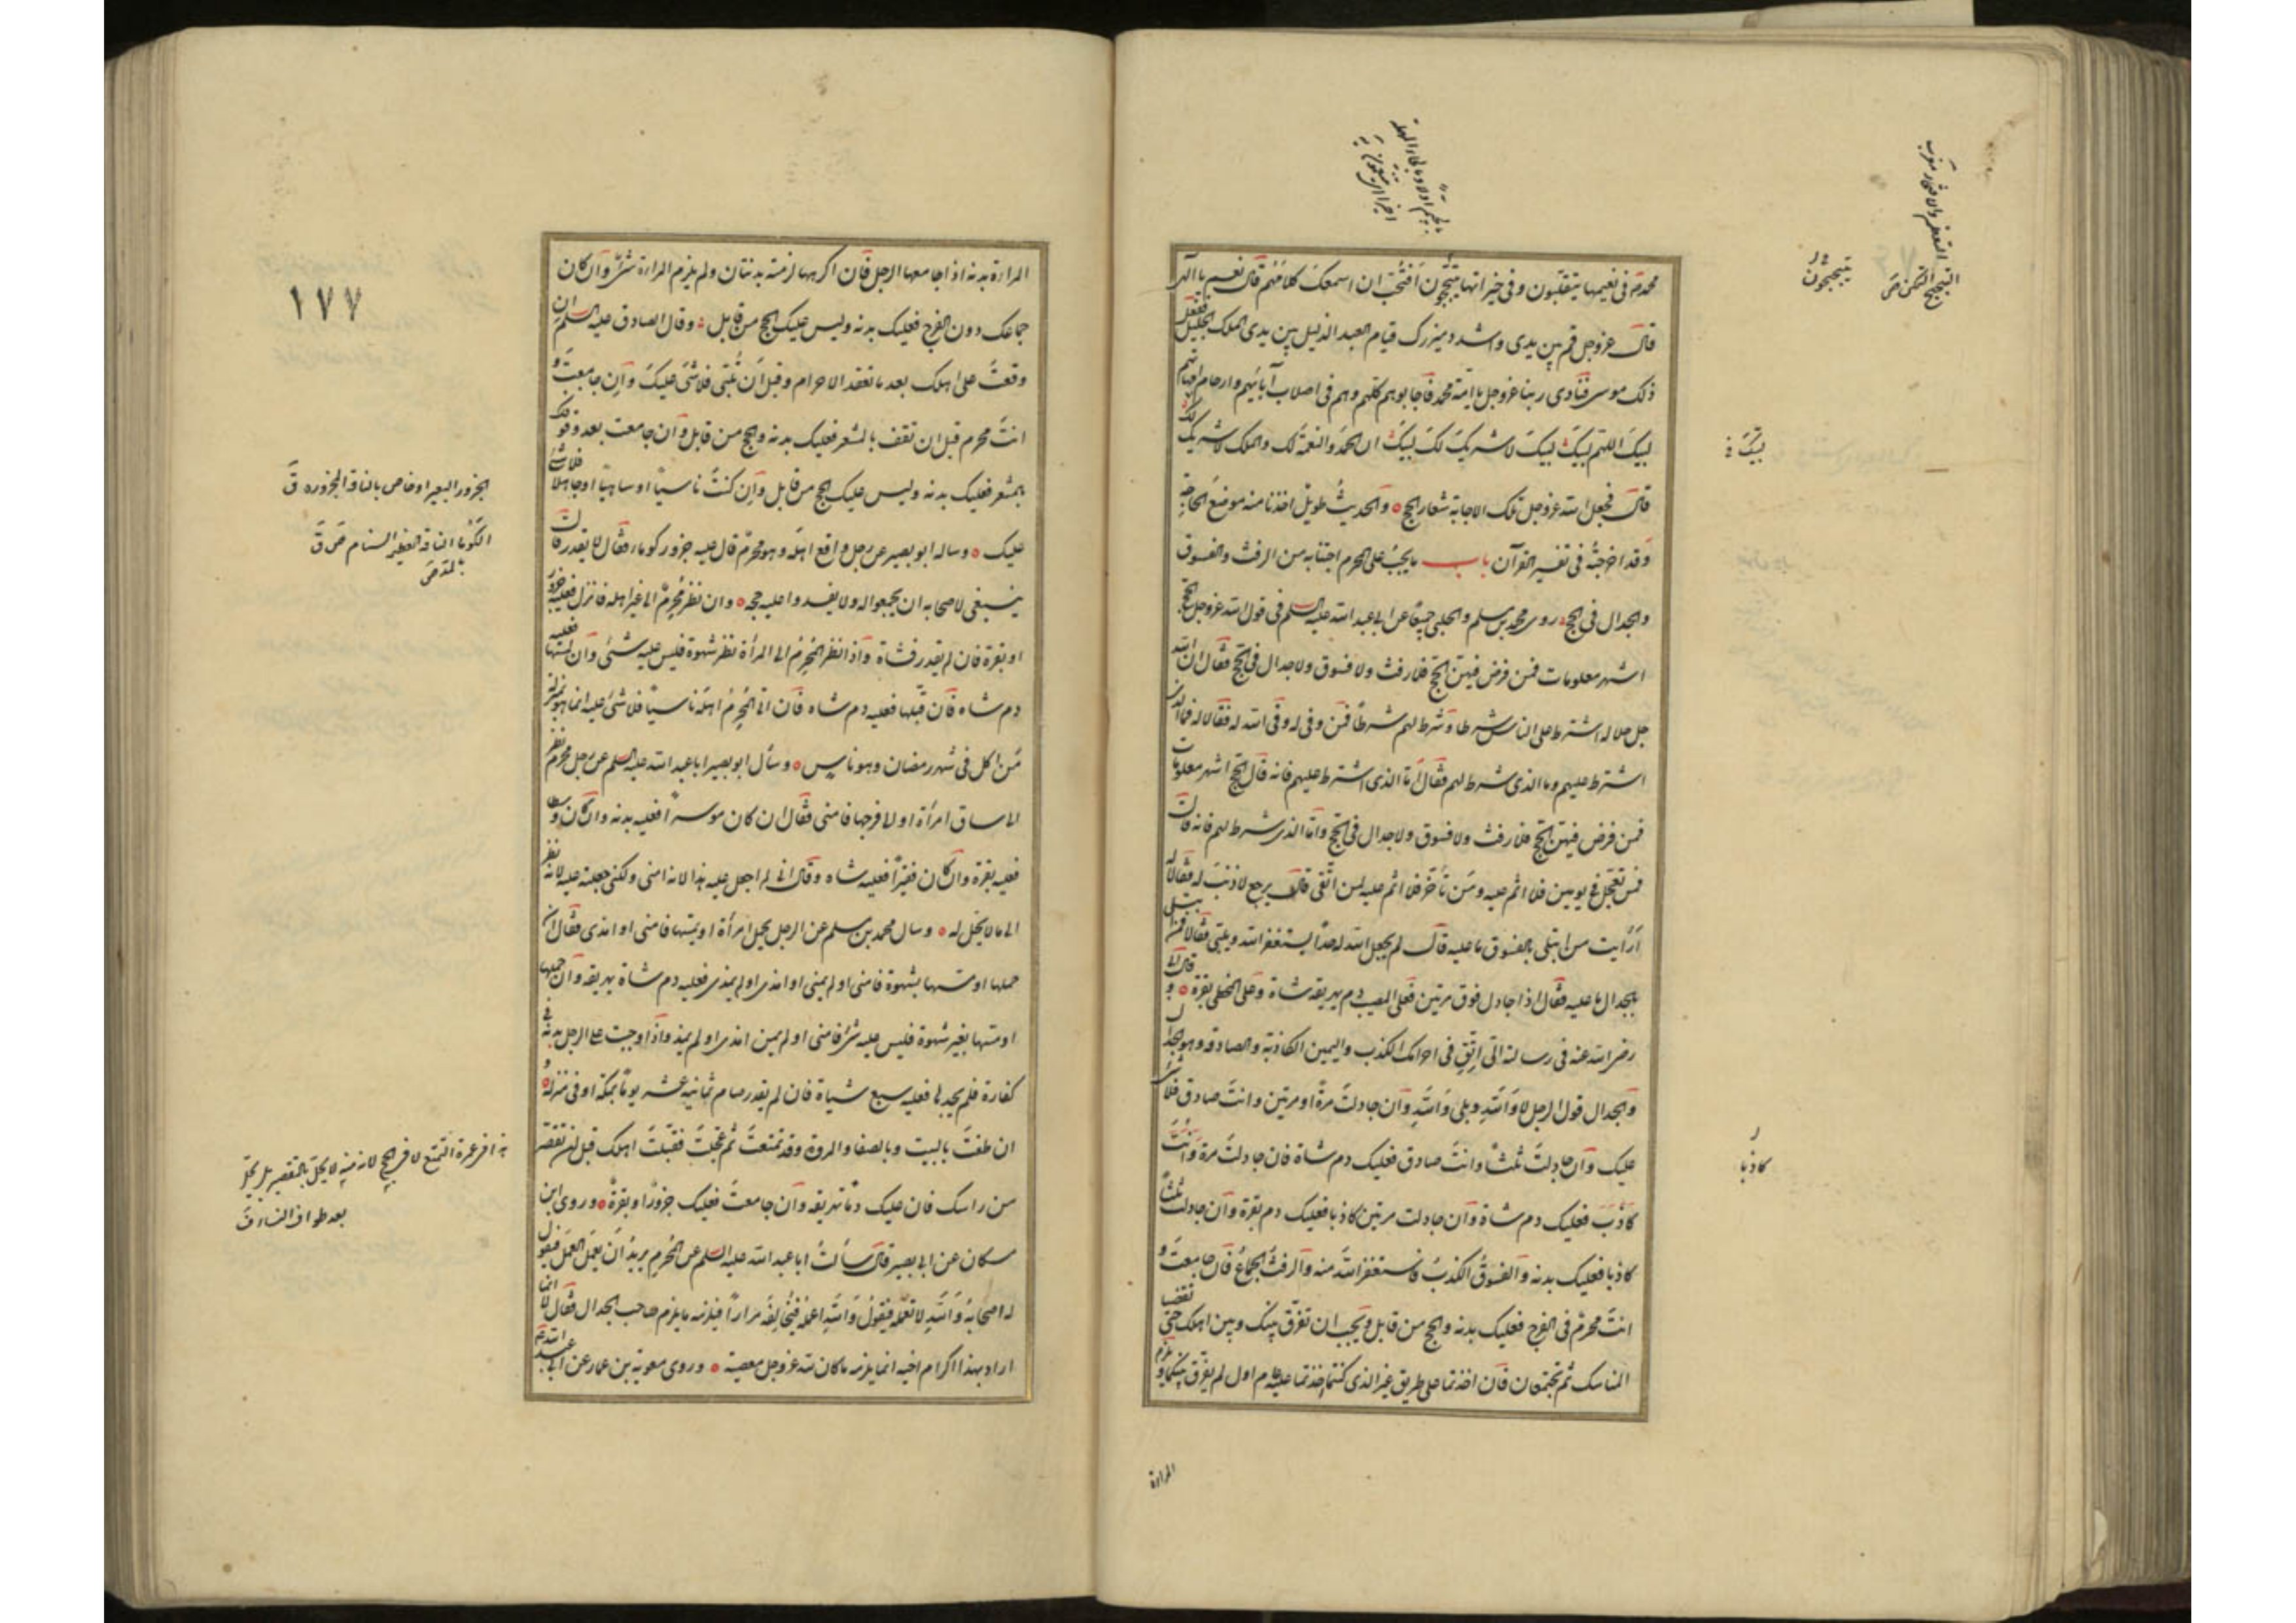 محمد في نعيمها يتقلبون وفي خيراتها يتبجحون أفتحب ان اسمعك كلامهم قال نعم يا الهي
قال عز وجل قم بين يدي واشدد ميزرك قيام العبد الذليل بين يدي الملك الجليل ففعل
ذلك موسى فنادى ربنا عز وجل يا امة محمد فاجابوه كلهم وهم في اصلاب آبائهم وارحام امهاتهم
لبيك اللهم لبيك لبيك لا شريك لك لبيك ان الحمد والنعمة لك والملك لا شريك لك
قال فجعل الله عز وجل تلك الاجابة شعار الحج والحديث طويل اخذنا منه موضع الحاجة
وقد اخرجته في تفسير القرآن باب ما يجب على المحرم اجتنابه من الرفث والفسوق
والجدال في الحج روى محمد بن مسلم والحلبي جميعا عن ابي عبد الله عليه السلم في قول الله عز وجل الحج
اشهر معلومات فمن فرض فيهن الحج فلا رفث ولا فسوق ولا جدال في الحج فقال ان الله
جل جلاله اشترط على الناس شرطا وشرط لهم شرطا فمن وفى له وفى الله له فقالا له فما الذي
اشترط عليهم وما الذي شرط لهم فقال اما الذي اشترط عليهم فانه قال الحج اشهر معلومات
فمن فرض فيهن الحج فلا رفث ولا فسوق ولا جدال في الحج واما الذي شرط لهم فانه قال
فمن تعجل في يومين فلا اثم عليه ومن تأخر فلا اثم عليه لمن اتقى قال يرجع لا ذنب له فقالا له
أرأيت من ابتلى بالفسوق ما عليه قال لم يجعل الله له حدا يستغفر الله ويلبي فقالا فمن ابتلى
بالجدال ما عليه فقال اذا جادل فوق مرتين فعلى المصيب دم يهريقه شاة وعلى المخطى بقرة وقال ابي
رضي الله عنه في رسالته الي اتق في احرامك الكذب واليمين الكاذبة والصادقة وهو الجدال
والجدال قول الرجل لا والله وبلى والله وان جادلت مرة او مرتين وانت صادق فلا شئ
عليك وان جادلت ثلثا وانت صادق فعليك دم شاة فان جادلت مرة وانت
كاذب فعليك دم شاة وان جادلت مرتين كاذبا فعليك دم بقرة وان جادلت ثلثا
كاذبا فعليك بدنه والفسوق الكذب فاستغفر الله منه والرفث الجماع فان جامعت و
انت محرم في الفرج فعليك بدنه والحج من قابل ويجب ان تفرق بينك وبين اهلك حتى تقضيا
المناسك ثم تجتمعان فان اخذتما على طريق غير الذي كنتما اخذتما عليه عام اول لم يفرق بينكما ويلزم
المراءة
يتبجحون
التبجح التمكن ص
لبيك
كاذبا
المراءة بدنه اذا جامعها الرجل فان اكرهها لزمته بدنتان ولم يلزم المراءة شئ وان كان
جماعك دون الفرج فعليك بدنه وليس عليك الحج من قابل وقال الصادق عليه السلم ان
وقعت على اهلك بعد ما تعقد الاحرام وقبل ان تلبي فلا شئ عليك وان جامعت و
انت محرم قبل ان تقف بالمشعر فعليك بدنه والحج من قابل وان جامعت بعد وقوفك
بالمشعر فعليك بدنه وليس عليك الحج من قابل وان كنت ناسيا او ساهيا او جاهلا فلا شئ
عليك وساله ابو بصير عن رجل واقع اهله وهو محرم قال عليه جزور كوماء فقال لا يقدر قال
ينبغي لاصحابه ان يجمعوا له ولا يفسدوا عليه حجه وان نظر محرم الى غير اهله فانزل فعليه جزور
او بقرة فان لم يقدر فشاة واذا نظر المحرم الى المرأة نظر شهوة فليس عليه شئ وان لمسها فعليه
دم شاه فان قبلها فعليه دم شاه فان اتى المحرم اهله ناسيا فلا شئ عليه انما هو بمنزلة
من اكل في شهر رمضان وهو ناس وسأل ابو بصير ابا عبد الله عليه السلم عن رجل محرم نظر
الى ساق امرأة او الى فرجها فامنى فقال ان كان موسرا فعليه بدنه وان كان وسطا
فعليه بقرة وان كان فقيرا فعليه شاه وقال اني لم اجعل عليه هذا لانه امنى ولكني جعلته عليه لانه نظر
الى ما لا يحل له وسال محمد بن مسلم عن الرجل يحمل امرأة او يمسها فامنى او امذى فقال ان
حملها او مسها بشهوة فامنى او لم يمنى او امذى او لم يمذى فعليه دم شاة يهريقه وان حملها
او مسها بغير شهوة فليس عليه شئ فامنى او لم يمن امذى او لم يمذ واذا وجبت على الرجل بدنه في
كفارة فلم يجدها فعليه سبع شياة فان لم يقدر صام ثمانية عشر يوما بمكة او في منزله و
ان طفت بالبيت وبالصفا والمروة وقد تمتعت ثم عجلت فقبلت اهلك قبل ان تقصر
من راسك فان عليك دما تهريقه وان جامعت فعليك جزور او بقرة وروى ابن
مسكان عن ابي بصير قال سألت ابا عبد الله عليه السلم عن المحرم يريد ان يعمل العمل فيقول
له اصحابه والله لا تعمله فيقول والله لاعملنه فيخالفه مرارا فيلزمه ما يلزم صاحب الجدال فقال لا انما
اراد بهذا اكرام اخيه انما يلزمه ما كان لله عز وجل معصية وروى معوية بن عمار عن ابي عبد الله ع
١٧٧
الجزور البعير او خاص بالناقة المجزورة ق
الكوما الناقة العظيمة السنام ص ق
بالمد ص
بعد طواف النساء ق